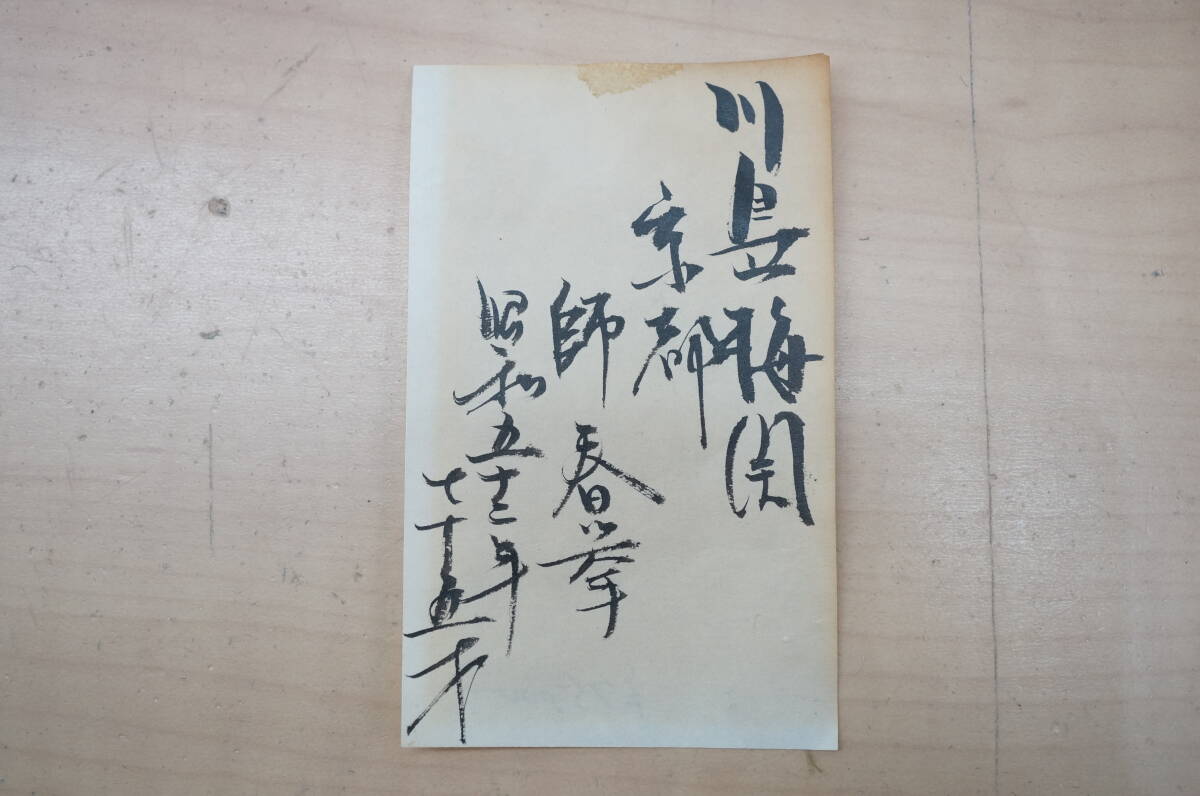 川島梅関
京都
師 春挙
昭和五十三年
七十五才